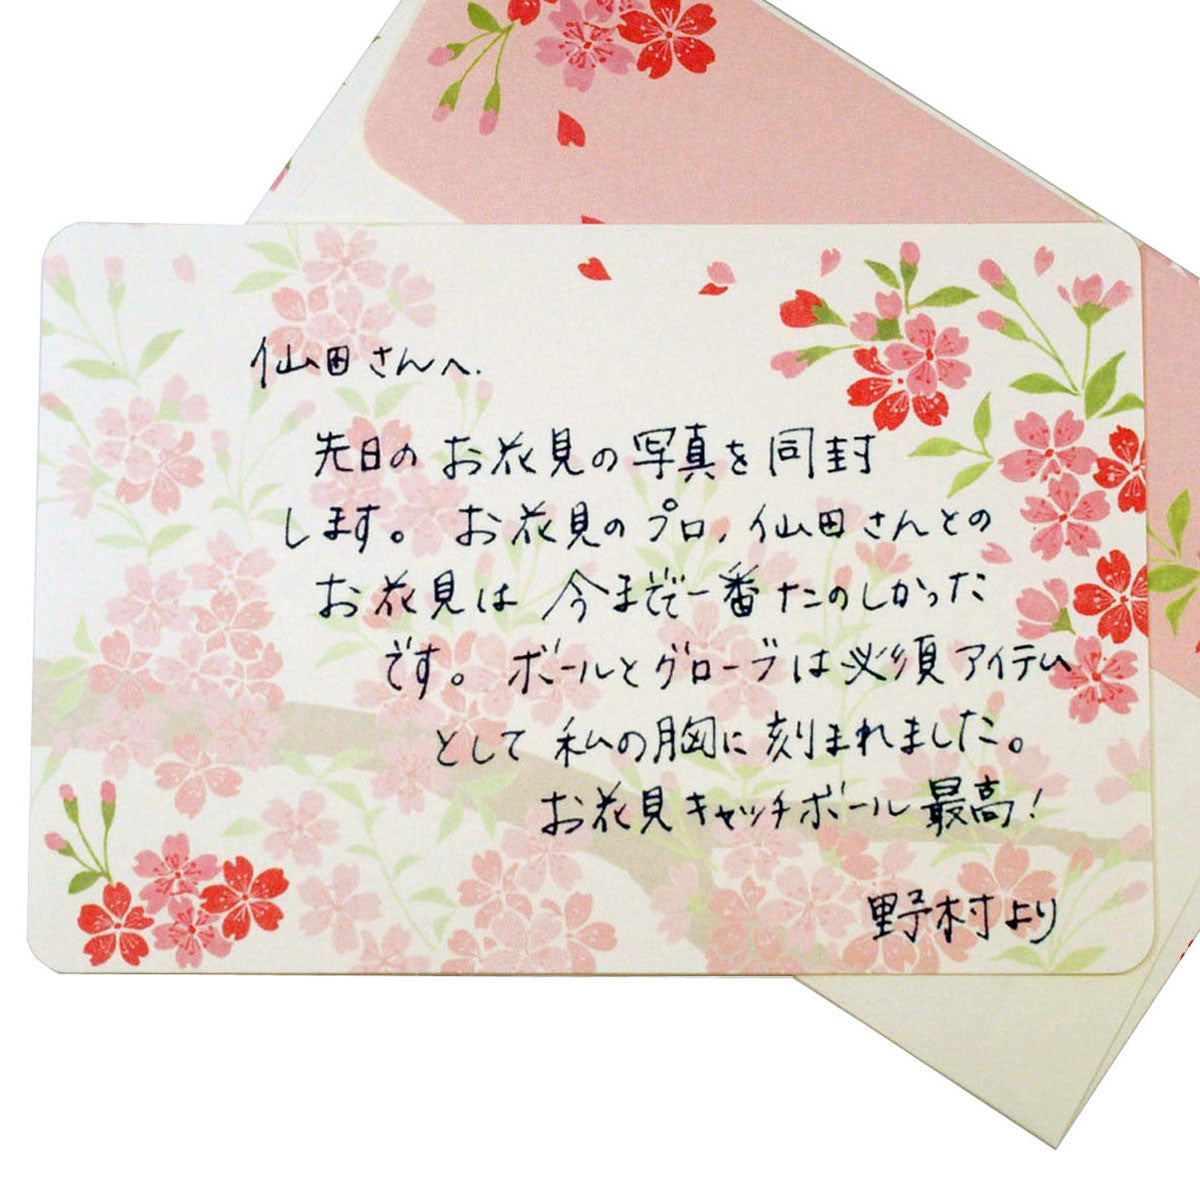 仙田さんへ.
先日のお花見の写真を同封
します。お花見のプロ、仙田さんとの
お花見は今までで一番たのしかった
です。ボールとグローブは必須アイテム
として私の胸に刻まれました。
お花見キャッチボール最高!
野村より